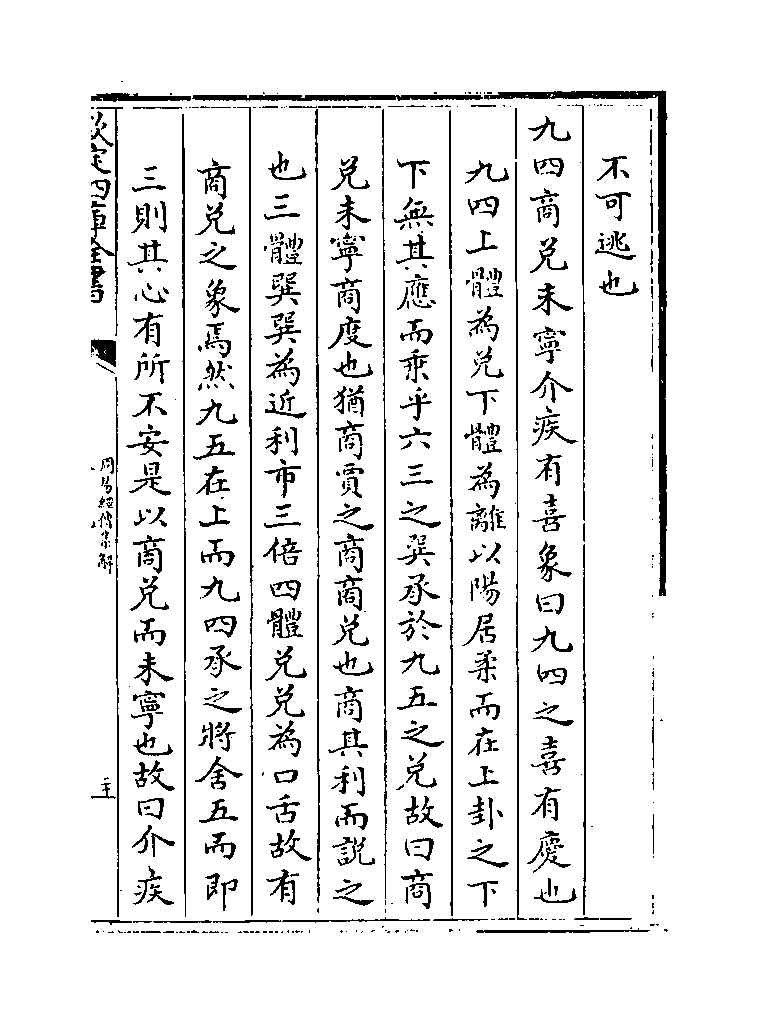 不可逃也
九四商兑未寧介疾有喜象曰九四之喜有慶也
九四上體為兑下體為離以陽居柔而在上卦之下
下無其應而乗乎六三之巽承於九五之兑故曰商
兑未寧商度也猶商賈之商商兑也商其利而說之
也三體巽巽為近利市三倍四體兑兑為口舌故有
商兑之象焉然九五在上而九四承之將舍五而即
三則其心有所不安是以商兑而未寧也故曰介疾
欽定四庫全書
周易經傳集解